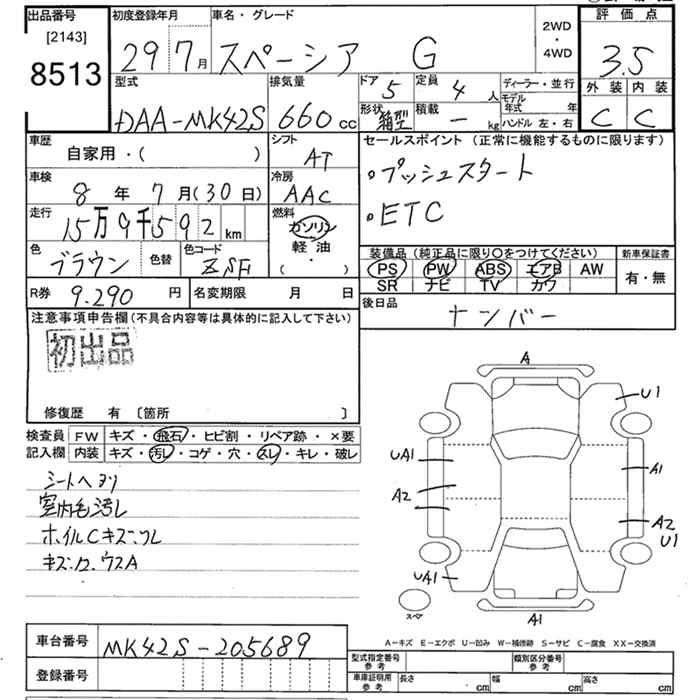 出品番号 初度登録年月 車名・グレード 評価点
[2143] 2WD
8513 29年7月 スペーシア G ・ 3.5
4WD
型式 排気量 ドア 5 定員 4人 ディーラー・並行 外装 内装
DAA-MK42S 660cc 形状 箱型 積載 - kg モデル年式 年 C C
ハンドル 左・右
車歴 シフト セールスポイント(正常に機能するものに限ります)
自家用・( ) AT
車検 冷房 。プッシュスタート
8年7月(30日) AAC
走行 燃料 。ETC
15万9千592km ガソリン
軽油・
色 ブラウン 色替 色コード ZSF ( )
装備品(純正品に限り〇をつけてください) 新車保証書
PS PW ABS エアB AW 有・無
SR ナビ TV カワ
R券 9.290円 名変期限 月 日 後日品
ナンバー
注意事項申告欄(不具合内容等は具体的に記入して下さい)
初出品
修復歴 有 [箇所 ]
検査員 FW キズ・飛石・ヒビ割・リペア跡・×要
記入欄 内装 キズ・汚レ・コゲ・穴・スレ・キレ・破レ
シートヘタリ
室内毛汚レ
ホイルCキズ.スレ
A
U1
UA1
A1
A2
A2
U1
UA1
スペア
A1
A-キズ E-エクボ U-凹み W-補修跡 S-サビ C-腐食 XX-交換済
車台番号 MK42S-205689
登録番号
型式指定番号 参考 類別区分番号 参考
車庫証明用 参考 長さ cm 幅 cm 高さ cm